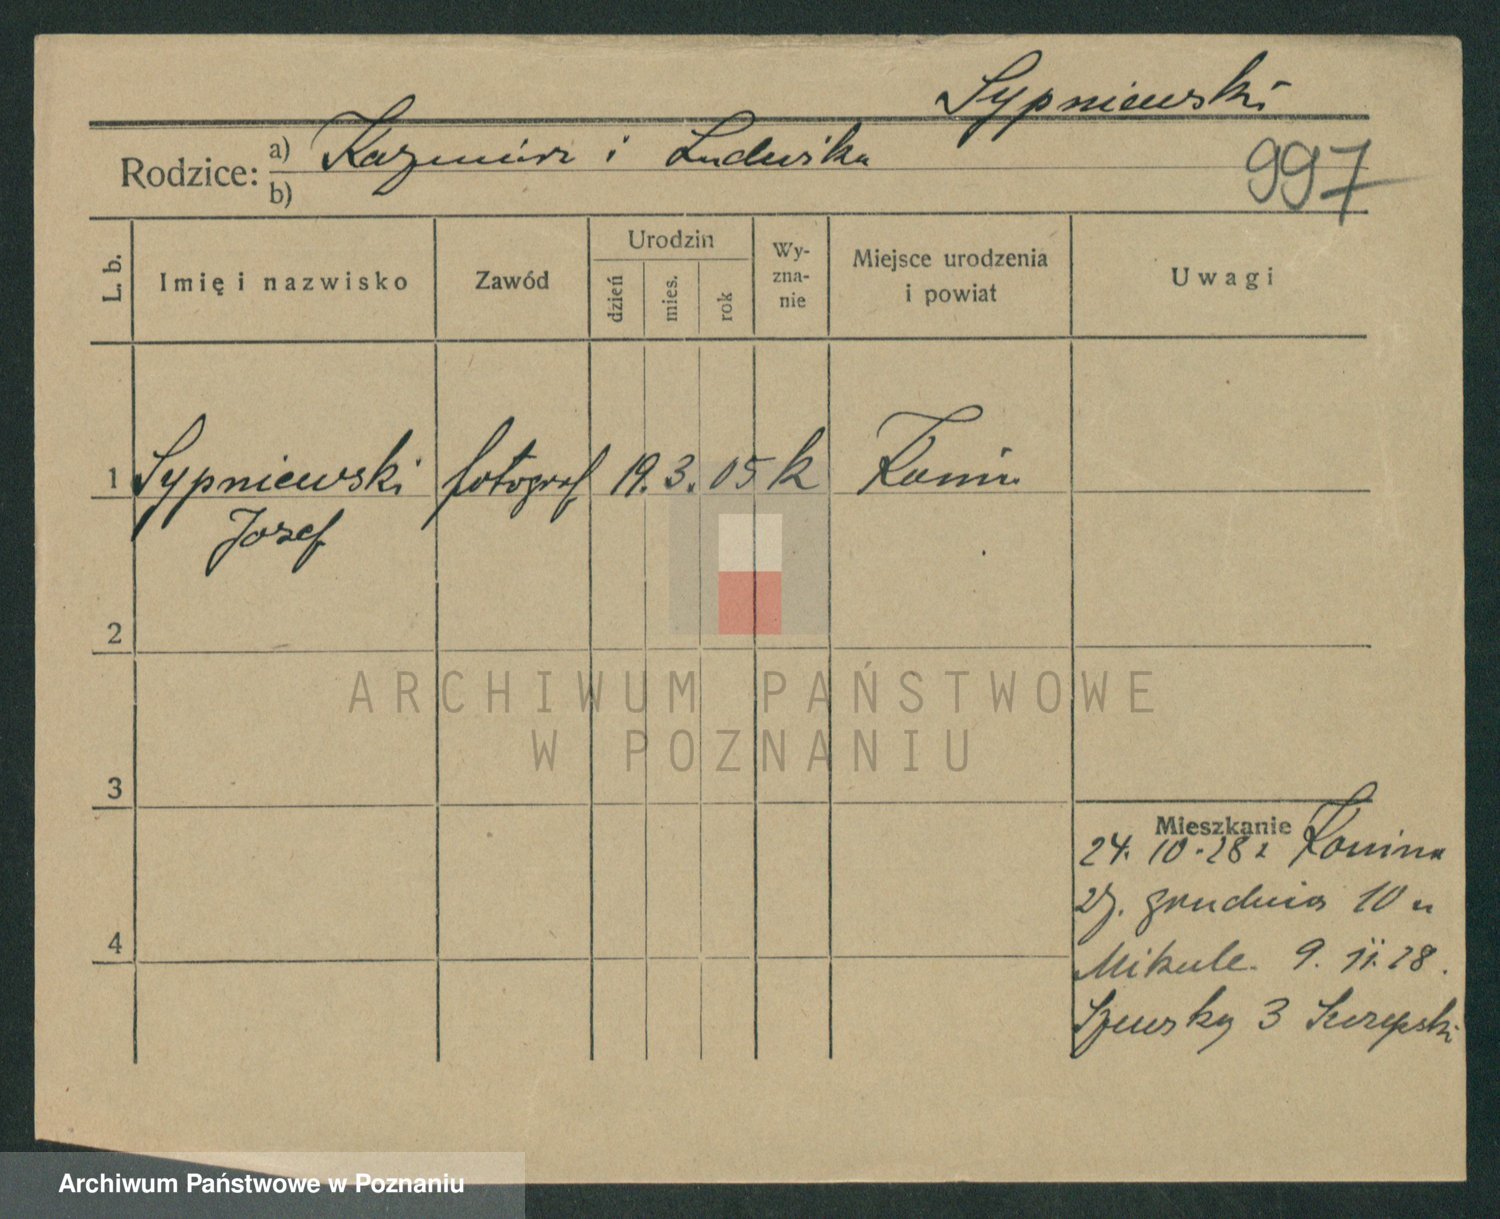 Sypniewski
Rodzice: a) Kazimierz i Ludwika
b)
997
L. b.
Imię i nazwisko
Zawód
Urodzin
dzień
mies.
rok
Wy-
zna-
nie
Miejsce urodzenia
i powiat
Uwagi
1 Sypniewski fotograf 19. 3. 05 k Konin
Józef
2
ARCHIWUM PAŃSTWOWE
W POZNANIU
3
Mieszkanie
24. 10. 28 z Konina
27. grudnia 10 u
Mikule. 9. 11. 28.
4
Szewska 3
Archiwum Państwowe w Poznaniu